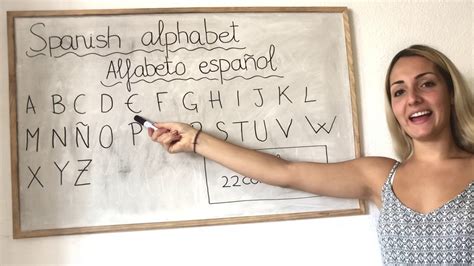 Spanish alphabet
Alfabeto español
A B C D E F G H I J K L
M N Ñ O P R S T U V W
X Y Z
22